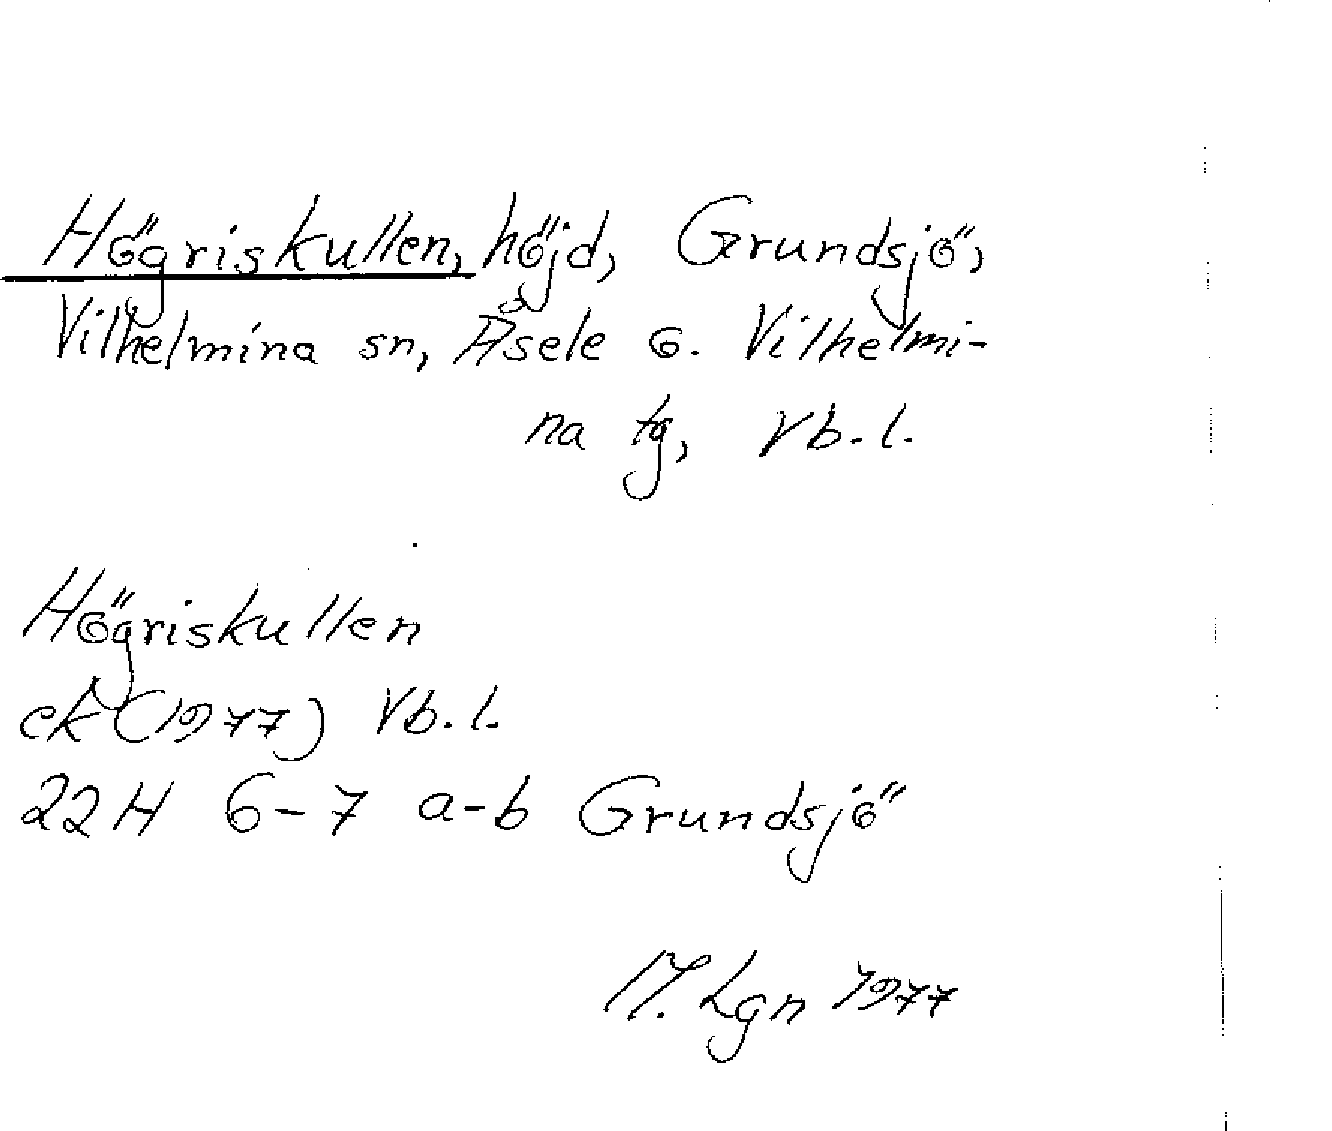 Högriskullen, höjd, Grundsjö,
Vilhelmina sn, Åsele o. Vilhelmi-
na tg, Vb. l.
Högriskullen
ek (1977) Vb. l.
22H 6-7 a-b Grundsjö
M. Lgn 1977